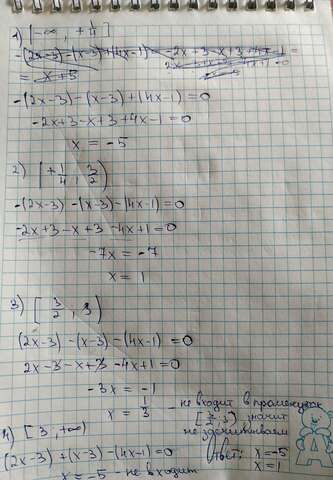 1) [-∞, +1/4]
-(2x-3)-(x-3)+(4x-1)
= x+5
-(2x-3)-(x-3)+(4x-1)=0
-2x+3-x+3+4x-1=0
x = -5
2) [+1/4, 3/2)
-(2x-3)-(x-3)-(4x-1)=0
-2x+3-x+3-4x+1=0
-7x = -7
x = 1
3) [3/2, 3)
(2x-3)-(x-3)-(4x-1)=0
2x-3-x+3-4x+1=0
-3x = -1
x = 1/3 - не входит в промежуток
[3/2, 3) значит
не засчитываем
4) [3, +∞)
(2x-3)+(x-3)-(4x-1)=0
x = -5 - не входит
Ответ: x=-5
x=1